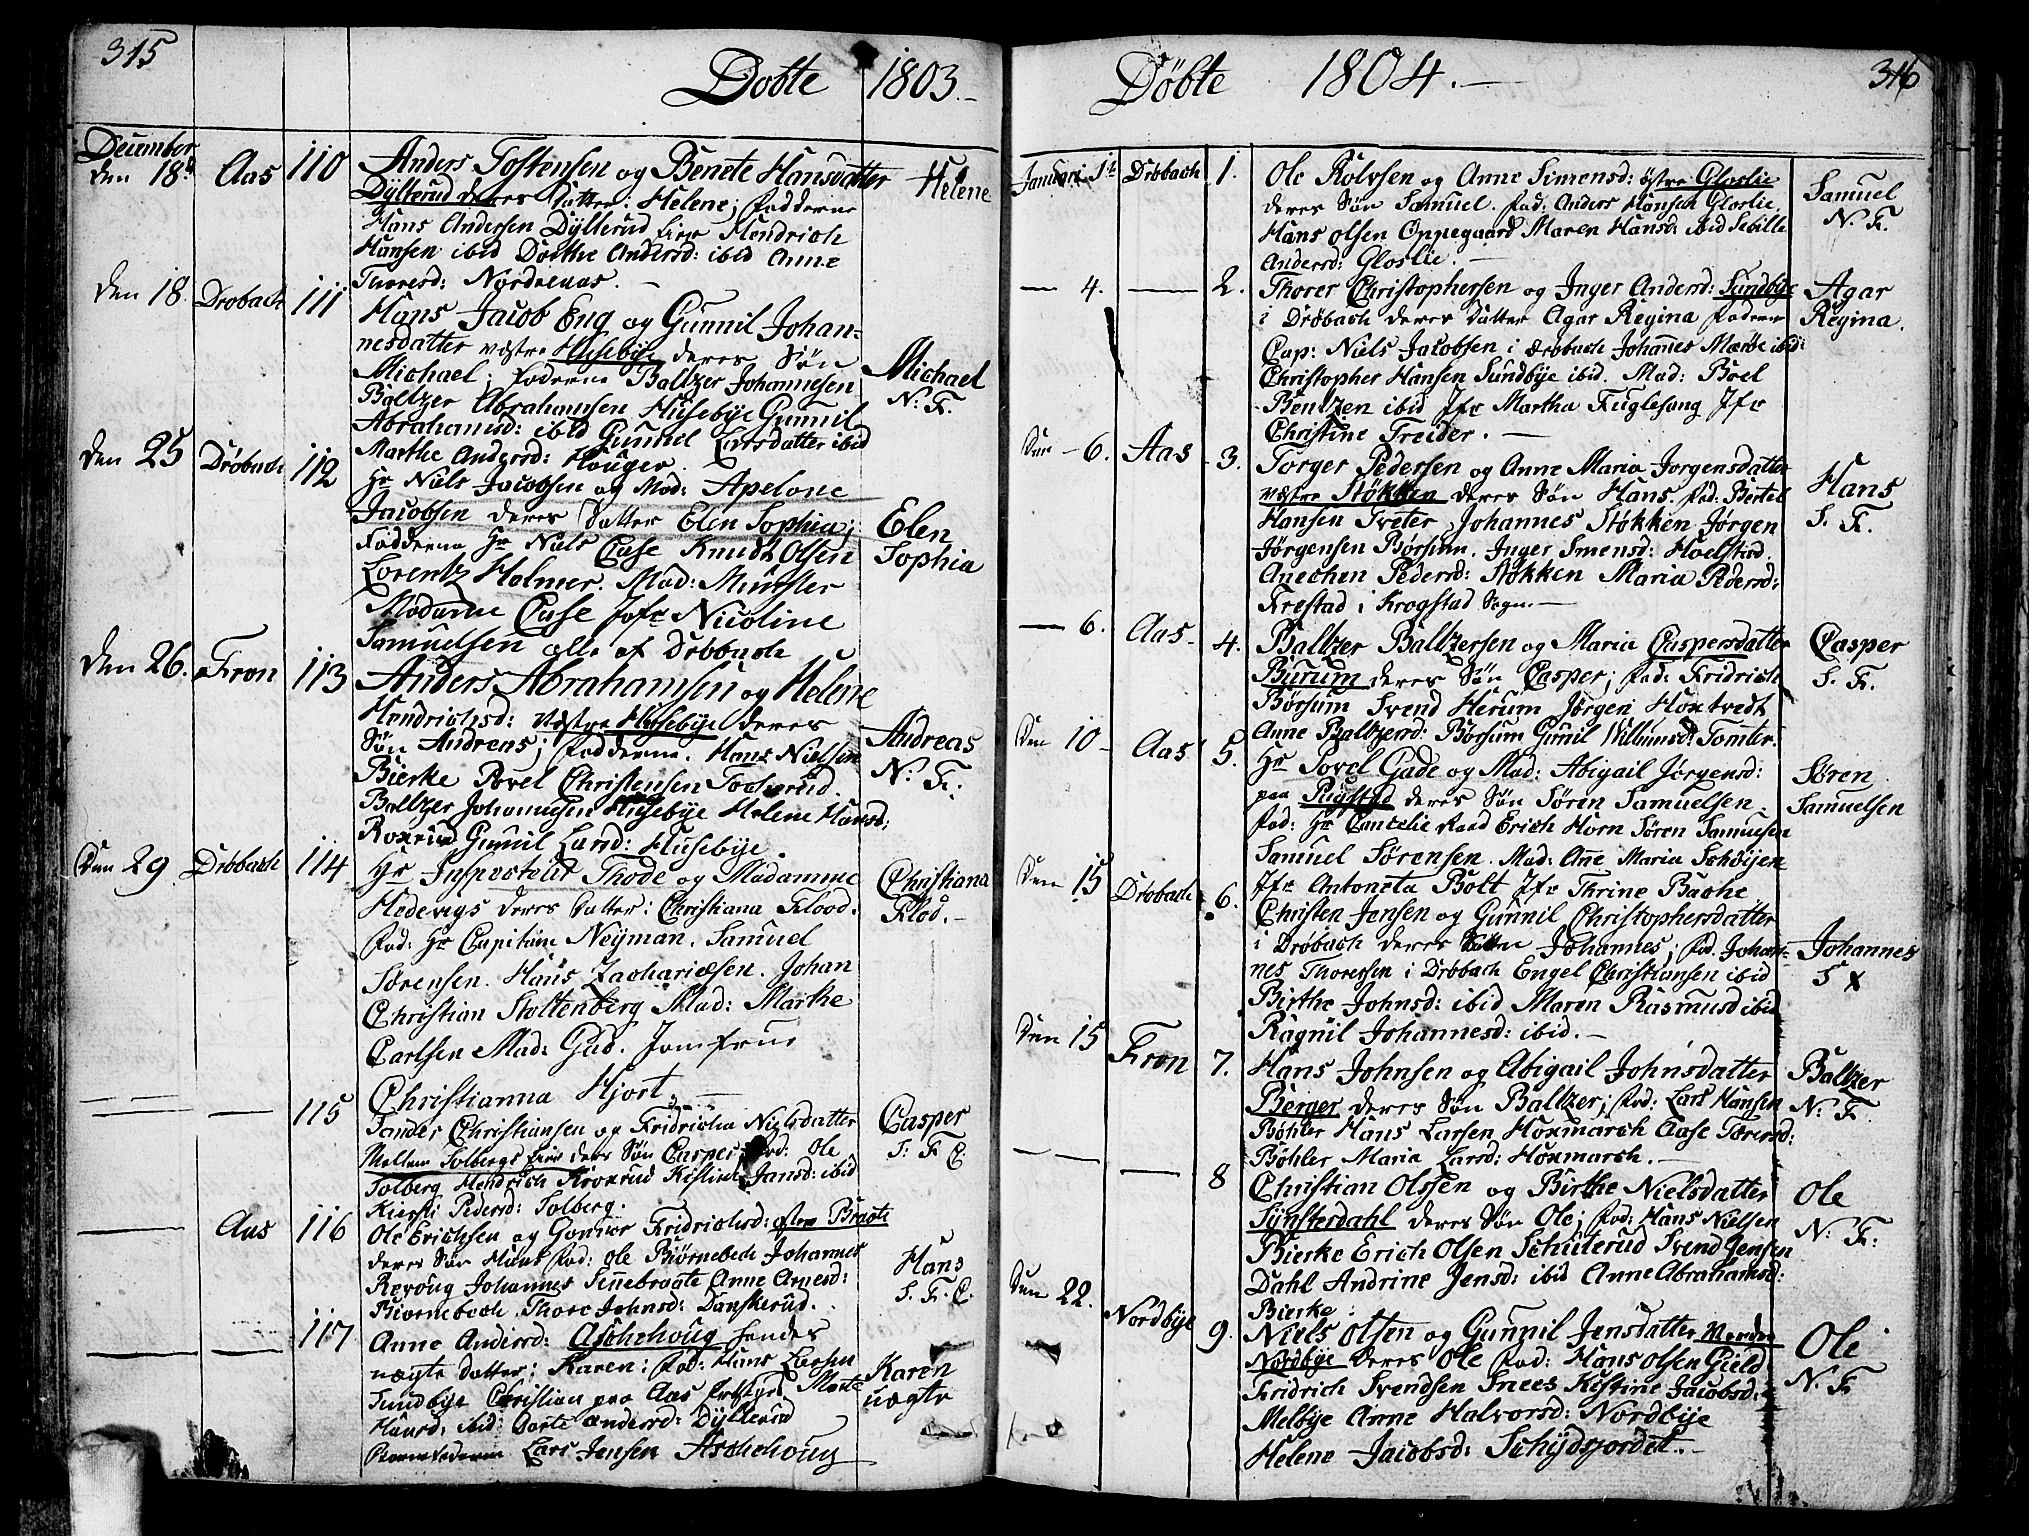 315
Döbte 1803.-
December
den 18de Aas 110 Anders Tostensen og Benete Hansdatter Helene
Dÿlterud deres Datter: Helene; Fadderne
Hans Andersen Dÿlterud Hendrich
Hansen ibid Dorthe Andersd: ibid Anne
Thoresd: Nordaenas. -
den 18. Drobach 111 Hans Jacob Eng og Gunnil Johan-
nesdatter vestre Husebÿe deres Søn
Michael; Fadderne Baltzer Johannesen Michael
Baltzer Abrahamsen Husebÿe Gunnil N: F.
Abrahamsd: ibid Gunnil Larsdatter ibid
Marthe Andersd: Houger.
den 25 Drøbach 112 Hr Niels Jacobsen og Mad: Apelone
Jacobsen deres Datter Elen Sophia; Elen
Fadderne Hr Niels Cuse Knudt Olsen Sophia
Lorentz Holmer. Mad: Münster
Madame Cuse Jfr Nicoline
Samuelsen alle af Drobbach
den 26. Fron 113 Anders Abrahamsen og Helene
Hendrichsd: vestre Husebÿe deres
Søn Andreas; Fadderne. Hans Nielsen Andreas
Bierke Povel Christensen N: F:
Baltzer Johannesen Husebÿe Helene Hansd:
Roxrud Gunnil Larsd: Husebÿe
den 29. Drobach 114 Hr Inspecteur Thode og Madamme Christiana
Hedevigs deres Datter: Christiana Flood. Flod. -
Fad: Hr Capitain Neÿman. Samuel
Sørensen. Hans Zachariæsen. Johan
Christian Stoltenberg Mad: Marthe
Carlsen Mad: Gud. Jomfrue
Christianna Hjort. -
115 Sander Christiansen og Fridricha Nielsdatter Casper
Mellem Solberg deres Søn Casper Fad: Ole S: F. C
Solberg Hendrich Kroxrud Kistine Jansd: ibid
Kiersti Pedersd: Solberg.
Aas 116 Ole Erichsen og Gonnor Fridrichsd: østre Braate
deres Søn Hans Fad: Ole Biørnebech Johannes Hans
Revoug Johannes Sennebraate Anne Arnesd: S. F. C.
Biornebech. Thore Johnsd: Danskerud.
117 Anne Andersd: Aschehoug hendes
uægte Datter: Karen: Fad: Hans Larsen Karen
Sundbÿe Christian paa Aas Marte uægte
Hansd: ibid: Dorte Andersd: Dÿlterud
Barnefaderen Lars Jensen Aschehoug
316
Döbte 1804.-
Januari 1te Drobach 1. Ole Rolvsen og Anne Simensd: østre Gloslie Samuel
deres Søn Samuel. Fad. Anders Hansen Gloslie. N. F.
Hans Olsen Oppegaard Maren Hansd: ibid Sebille
Andersd: Gloslie. -
- 4. - 2. Thorer Christophersen og Inger Andersd: Sundbÿe Agar
i Drøbach deres Datter Agar Regina Fadder Regina.
Cap: Niels Jacobsen i Drøbach Johannes Mærøe ibid:
Christopher Hansen Sundbÿe ibid. Mad: Boel
Bentzen ibid Jfr Martha Fuglesang Jfr
Christine Treider. -
Den - 6. Aas 3. Torger Pedersen og Anne Maria Jorgensdatter
vestre Støkken deres Søn Hans. Fad: Bertel Hans
Hansen Treter Johannes Støkken Jørgen S. F.
Jørgensen Børsum. Inger Simensd: Hoelstad.
Anechen Pedersd: Støkken Maria Pedersd:
Frestad i Krogstad Sogn. -
- 6. Aas- 4. Baltzer Baltzersen og Maria Caspersdatter Casper
Burum deres Søn Casper; Fad: Fridrich S. F.
Børsum Svend Herum Jørgen Hoxtvedt
Anne Baltzersd: Børsum Gunil Willumsd: Tomter.
Den 10 - Aas 5. Hr Povel Gade og Mad: Abigail Jörgensd: Søren
paa Rugstad deres Søn Søren Samuelsen. Samuelsen
Fad: Hr Cancelie Raad Erich Horn Søren Samuesen
Samuel Sørensen. Mad: Ane Maria Schöijen
Jfr Antoneta Bolt Jfr Thrine Bache
Den 15 Drøbach 6. Christen Jensen og Gunnil Christophersdatter
i Drøbach deres Søn Johannes; Fad. Johan- Johannes
nes Thoresen i Drøbach Engel Christiansen ibid S x
Birthe Johnsd: ibid Maren Rasmusd ibid
Ragnil Johannesd: ibid. -
Den 15 Fron 7. Hans Johnsen og Abigail Johnsdatter Baltzer
Berger deres Søn Baltzer; Fad: Lars Hansen N. F.
Bøhler Hans Larsen Hoxmarch Aase Toresd:
Bøhler Maria Larsd: Hoxmarch. -
8 Christian Olssen og Birthe Nielsdatter Ole
Sÿnsterdahl deres Søn Ole; Fad: Hans Nielsen N: F:
Bierke Erich Olsen Schuterud Svend Jensen
Dahl Andrine Jensd: ibid Anne Abrahamsd:
Bierke.
Den 22. Nordbÿe 9. Niels Olsen og Gunnil Jensdatter Nordre Ole
Nordbÿe deres Ole Fad: Hans Olsen Gield N. F.
Fridrich Svendsen Snees Kistine Jacobsd:
Melbÿe Anne Halvorsd: Nordbÿe
Helene Jacobsd: Schÿdsjordet. -